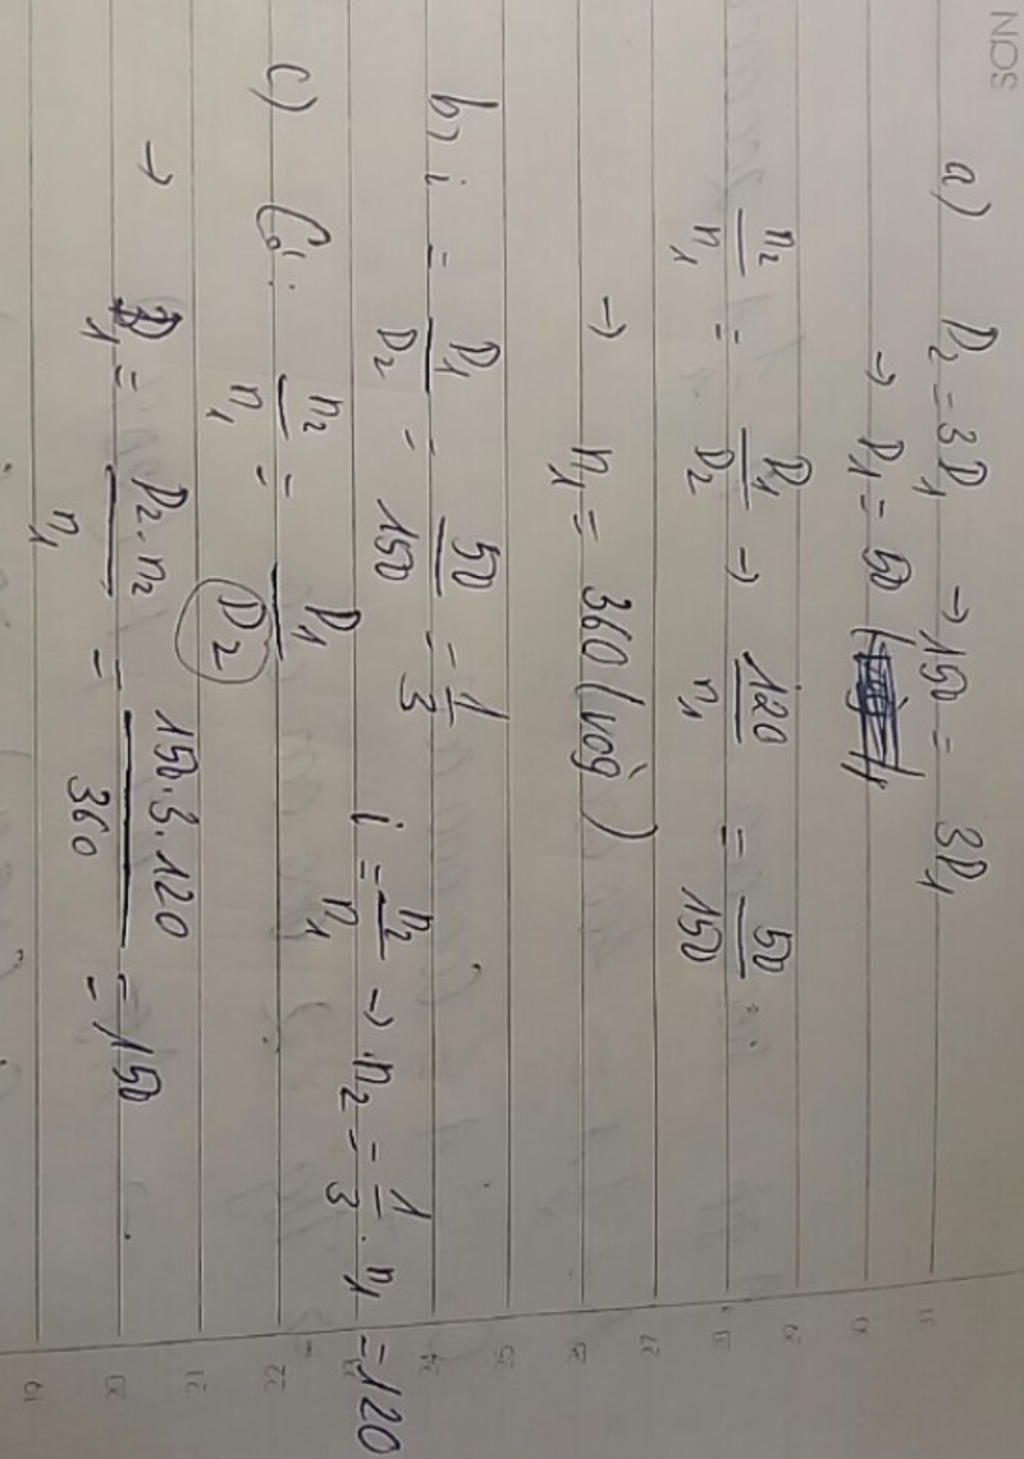 a) D₂ = 3D₁ → 150 = 3D₁
→ D₁ = 50
n₂/n₁ = D₁/D₂ → 120/n₁ = 50/150
→ n₁ = 360 (vòg)
b, i = D₁/D₂ = 50/150 = 1/3 i = n₂/n₁ → n₂ = 1/3 . n₁ = 120
c) Có: n₂/n₁ = D₁/D₂
→ D₁ = D₂.n₂/n₁ = 150.3.120/360 = 150